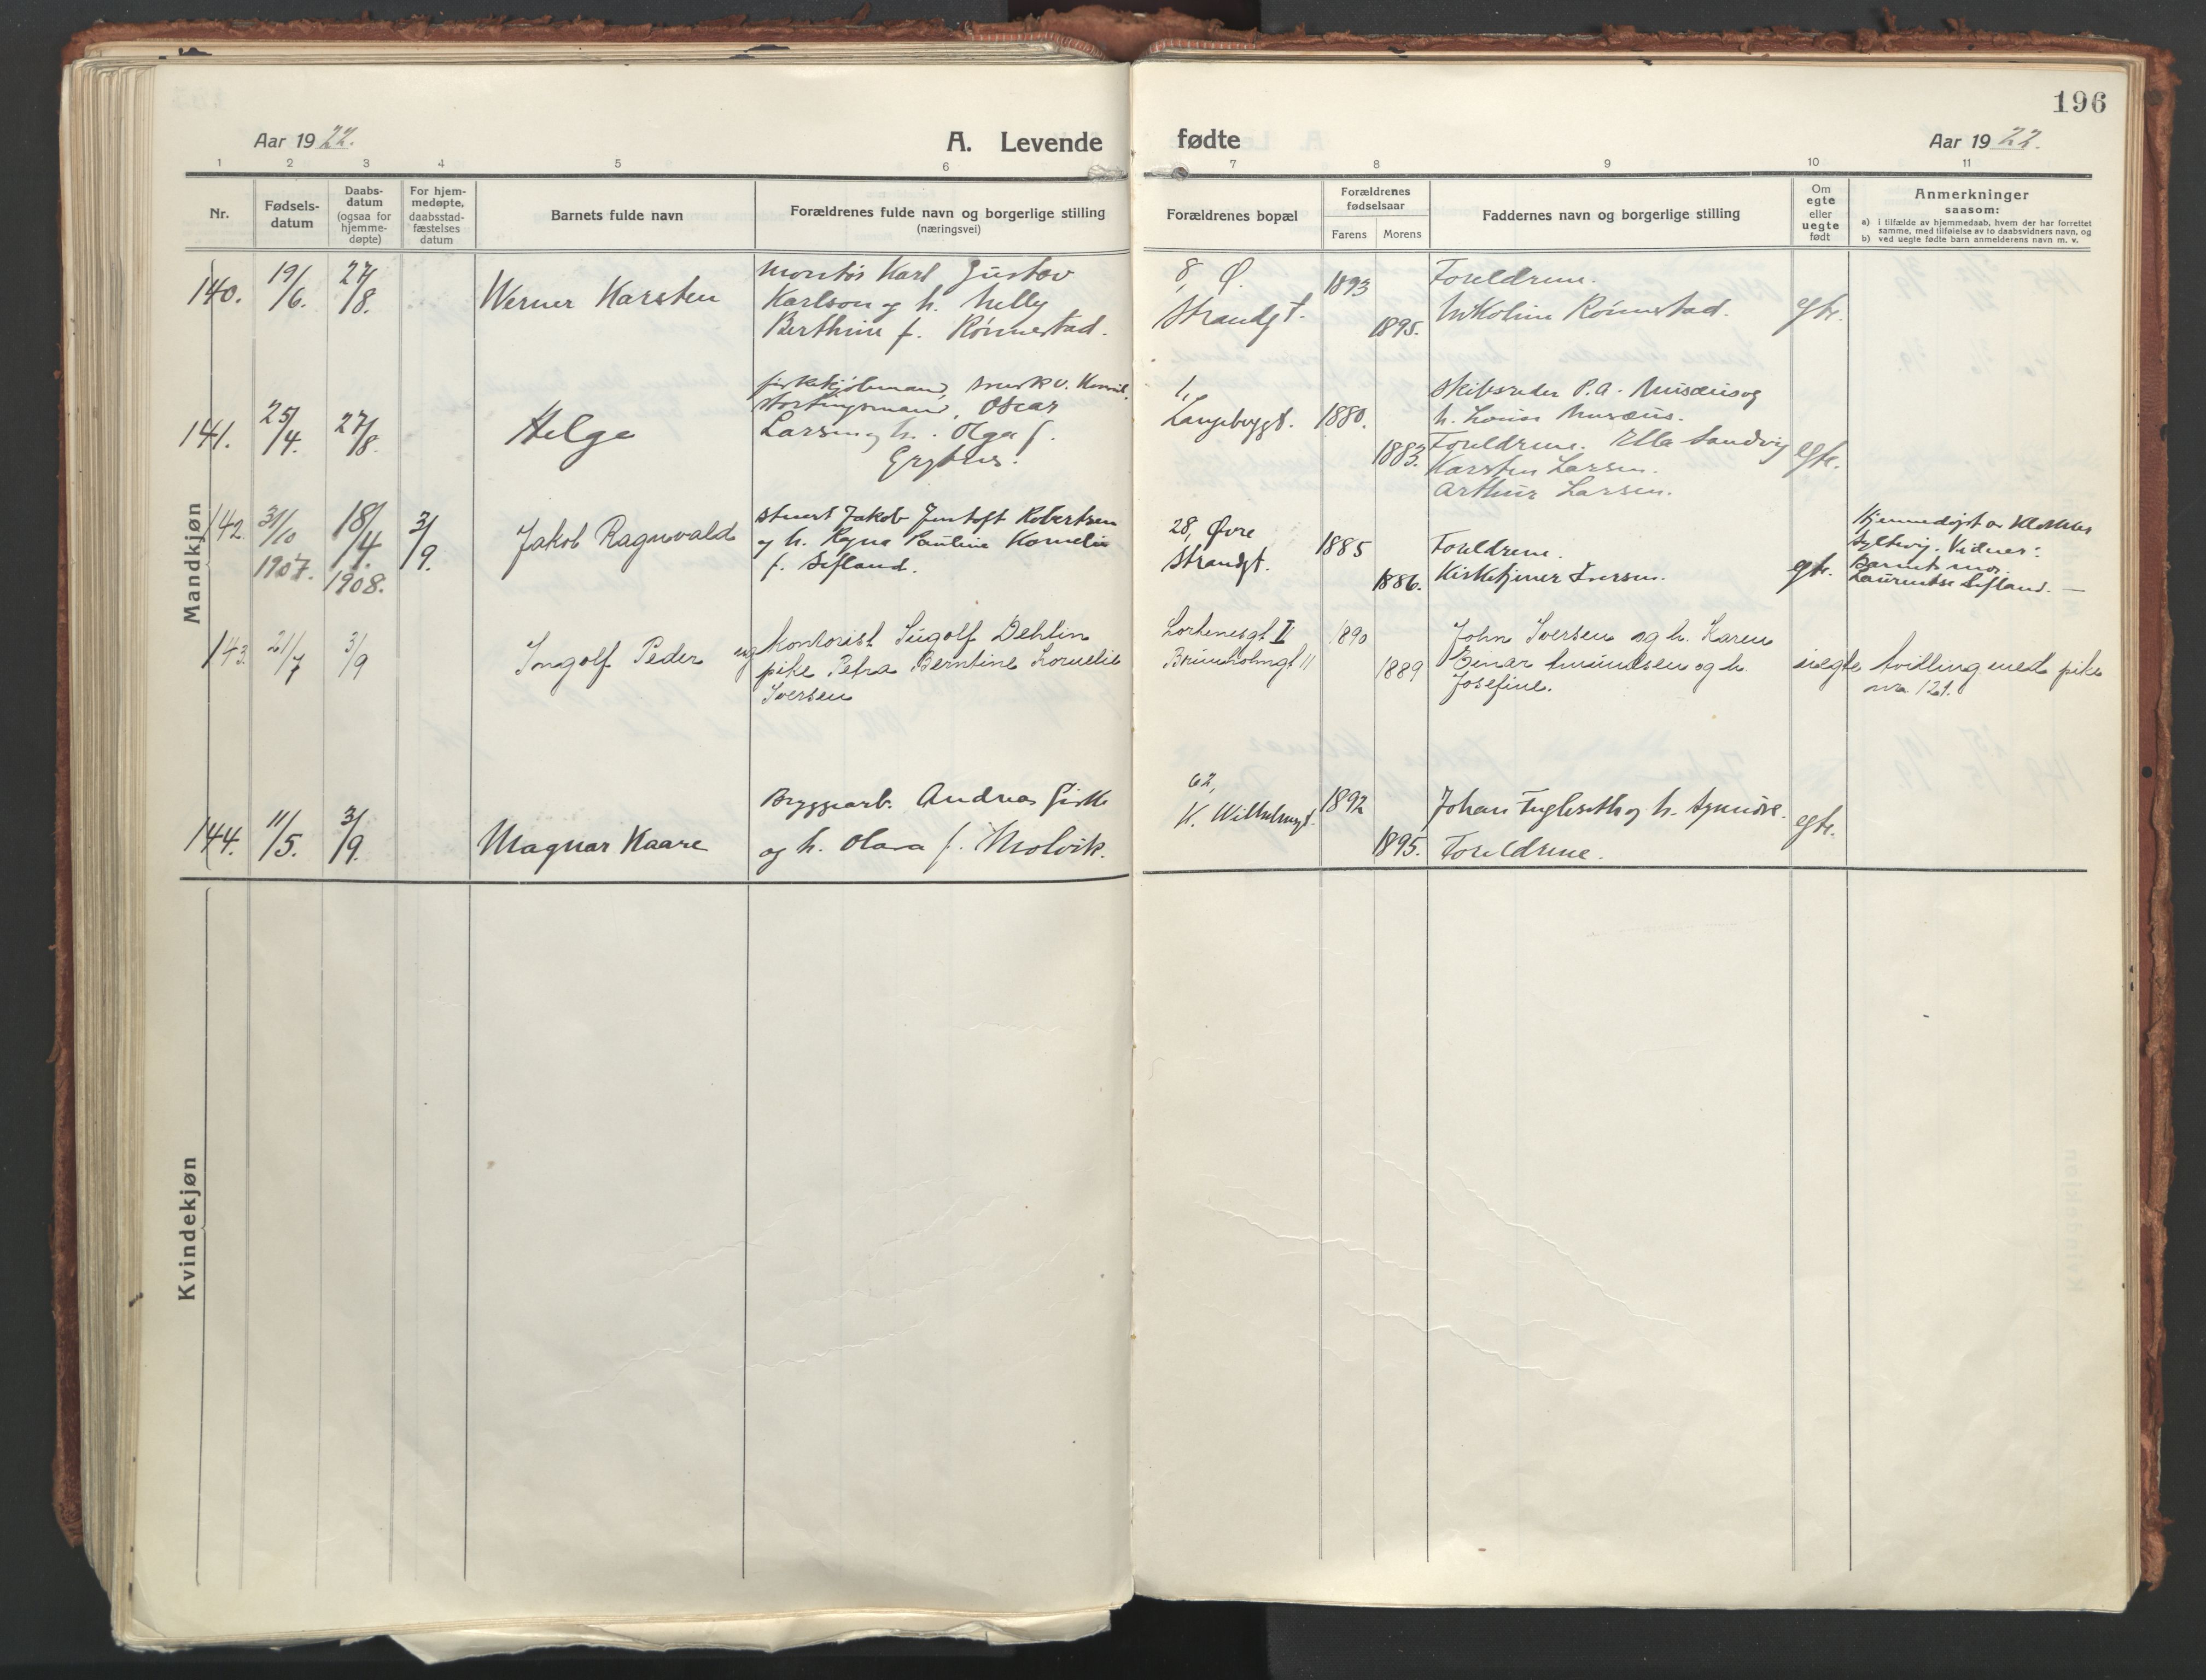 196
Aar 1922.
A. Levende
fødte
Aar 1922.
1 2 3 4 5 6 7 8 9 10 11
Nr.
Fødsels-
datum
Daabs-
datum
(ogsaa for
hjemme-
døpte)
For hjem-
medøpte,
daabsstad-
fæstelses
datum
Barnets fulde navn
Forældrenes fulde navn og borgerlige stilling
(næringsvei)
Forældrenes bopæl
Forældrenes
fødselsaar
Farens Morens
Faddernes navn og borgerlige stilling
Om
egte
eller
uegte
født
Anmerkninger
saasom:
a) i tilfælde av hjemmedaab, hvem der har forrettet
samme, med tilføielse av to daabsvidners navn, og
b) ved uegte fødte barn anmelderens navn m. v.
Mandkjøn
140.
19/6.
27/8.
Werner Karsten
Montør Karl Gustav
Karlson og h. Nelly
Berthine f. Rønnestad.
8, Ø.
Strandgt.
1893
1895.
Foreldrene.
Nikoline Rønnestad.
egte.
141.
25/4.
27/8.
Helge
stortingsmand, Oscar
Larsen og h. Olga f.
1,
1880.
1883.
Skibsreder P.A. Musæus og
h. Louise Musæus.
Foreldrene. Ella Sandvig
Karsten Larsen.
Arthur Larsen.
egte.
142.
31/10
1907.
18/4.
1908.
3/9.
Jakob Ragnvald
Stuert Jakob Jentoft Robertsen
og h. Ragna Pauline Kornelie
f. Sefland.
28, Øvre
Strandgt.
1885
1886.
Foreldrene.
Kirketjener Iversen.
egte.
Hjemmedøpt av Klokker
Syltevig. Vidner:
Barnets mor.
Laurentse Sefland. —
143.
21/7
3/9
Ingolf Peder
ug
Kontorist Ingolf Dehlin
pike Petra Berntine Kornelie
Iversen
Brunholmgt 11
1890
1889
John Iversen og h. Karen
Einar Amundsen og h.
Josefine.
uegte
tvilling med pike
nr. 121.
144.
11/5.
3/9.
Magnar Kaare
Bryggearb. Andreas Giske
og h. Olava f. Molvik.
62,
K. Wilhelmsgt.
1892
1895.
Johan Fugleseth og h.
Foreldrene.
egte.
Kvindekjøn